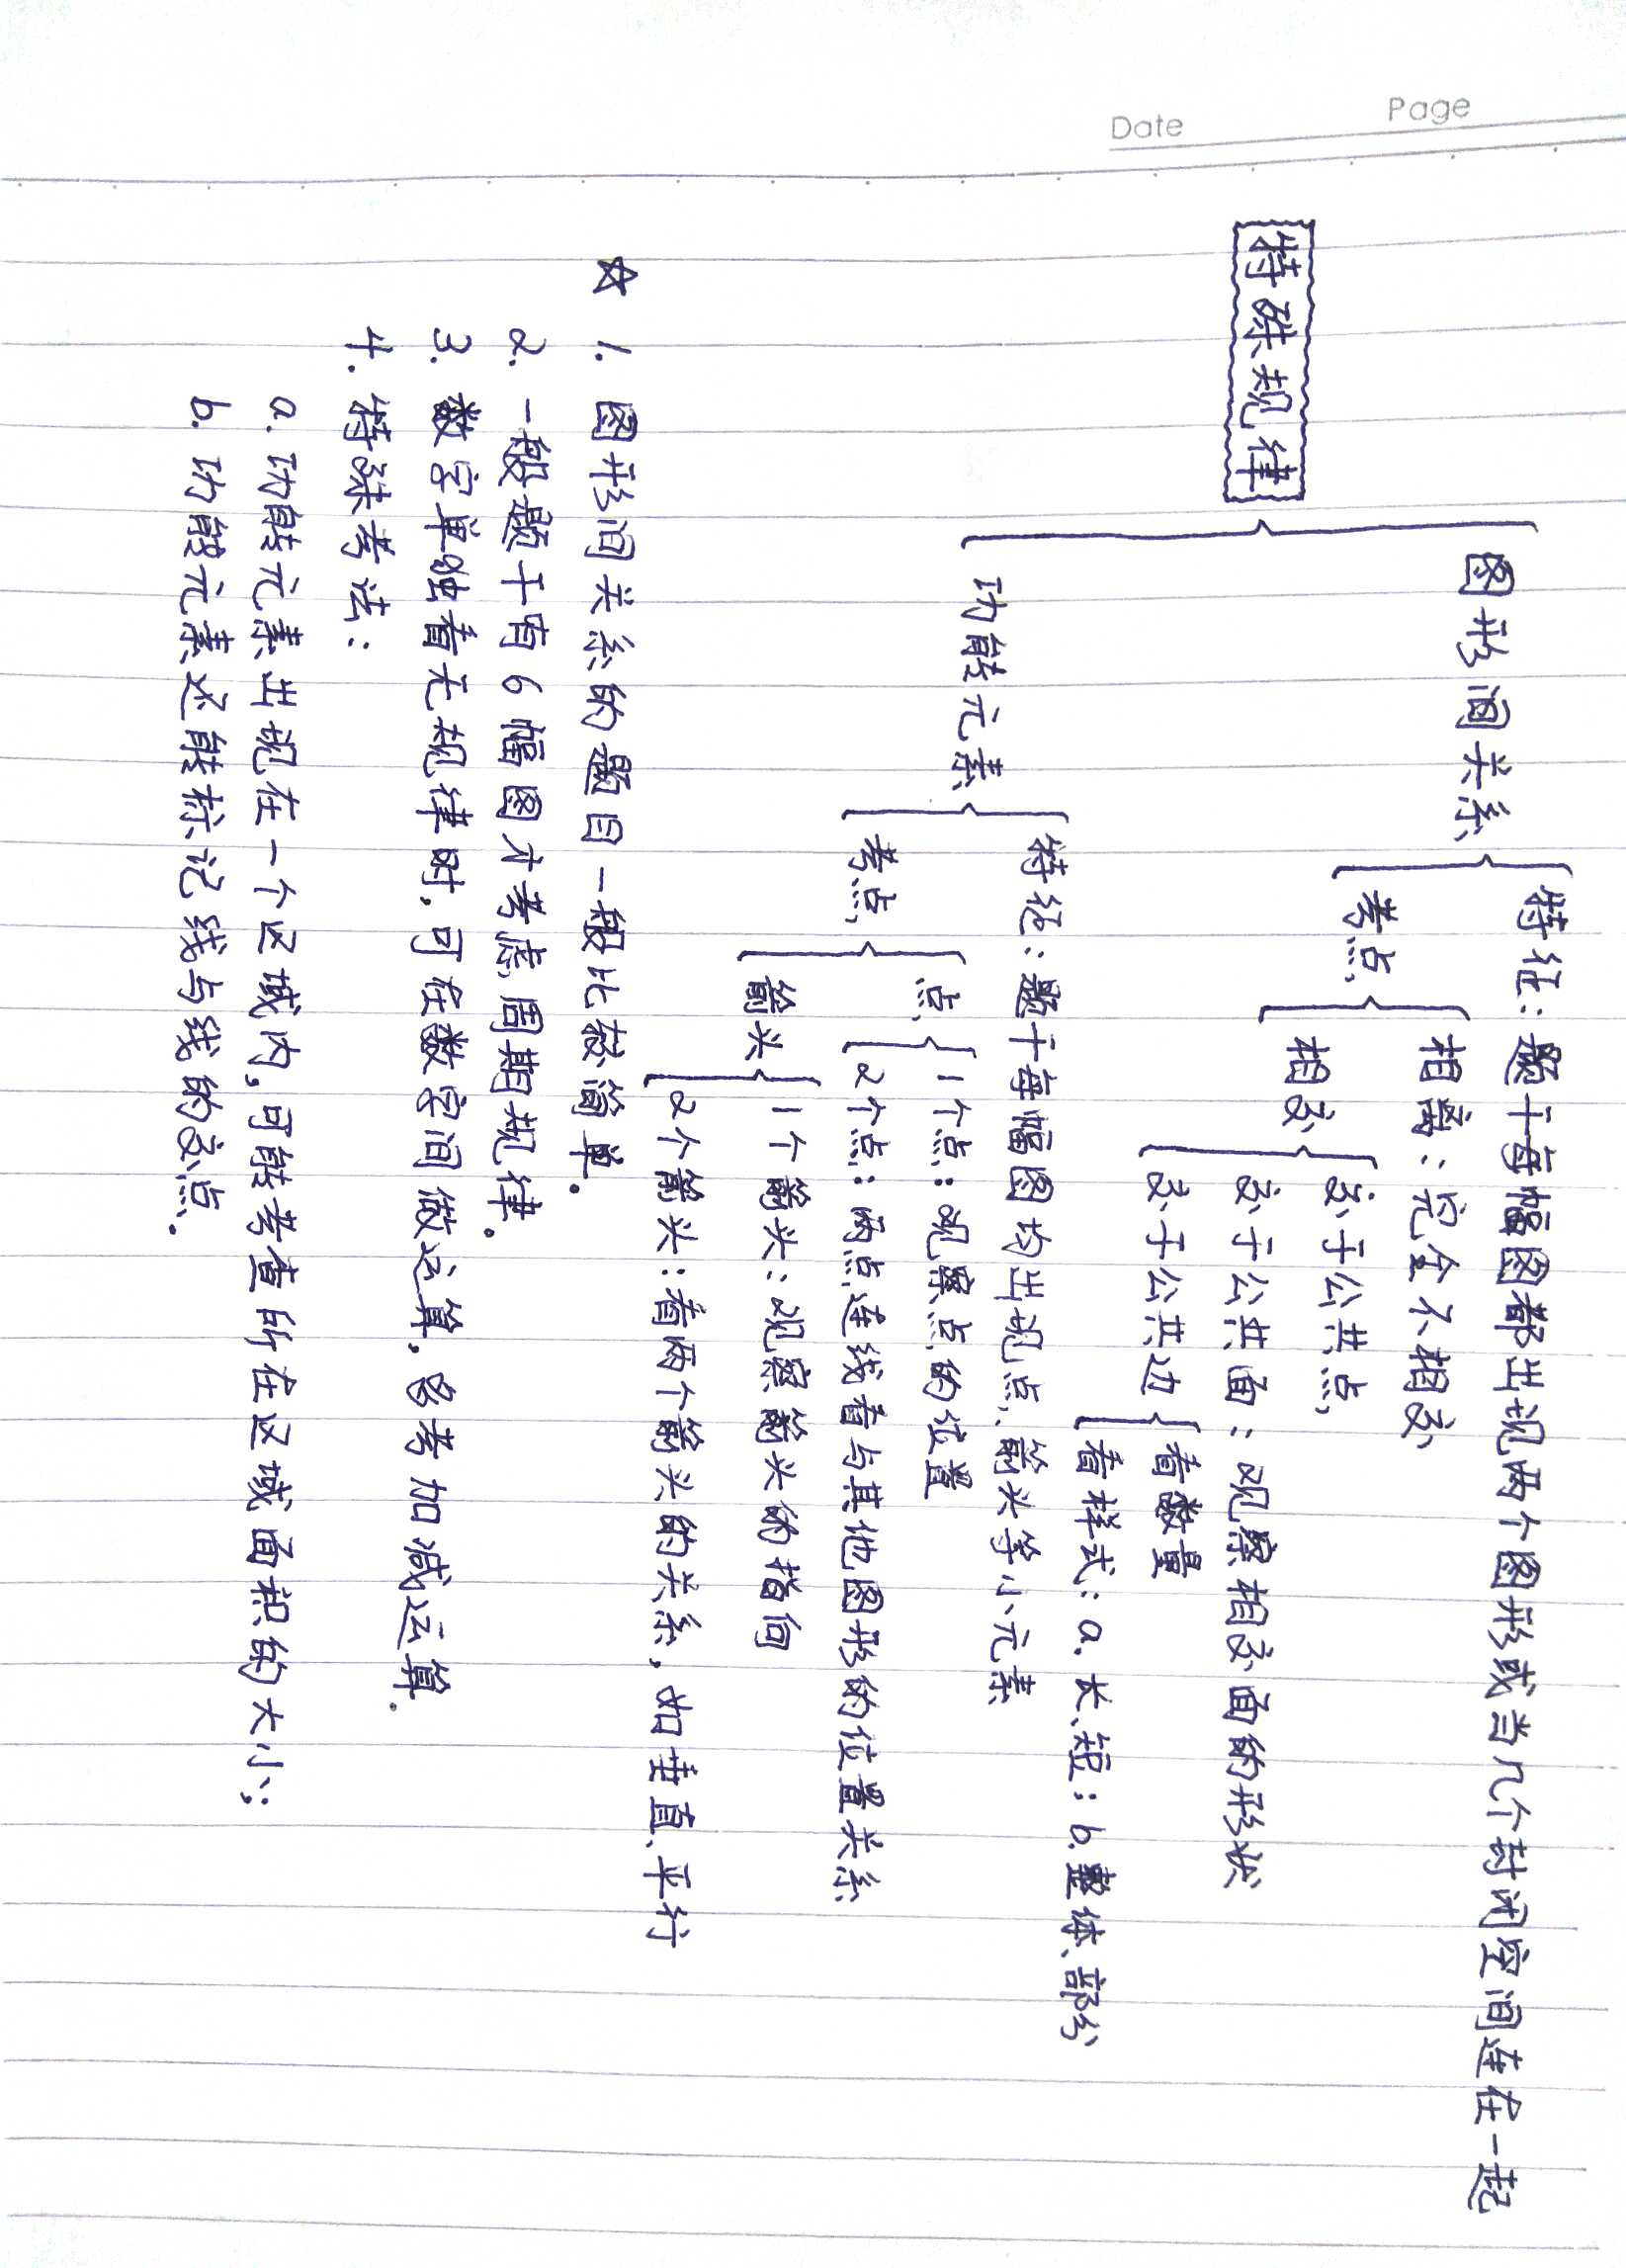 Date Page
特殊规律
图形间关系
特征：题干每幅图都出现两个图形或当几个封闭空间连在一起
考点
相离：完全不相交
相交
交于公共点
交于公共面：观察相交面的形状
交于公共边
看数量
看样式：a.长、短；b.整体、部分
功能元素
特征：题干每幅图均出现点、箭头等小元素
考点
点
1个点：观察点的位置
2个点：两点连线看与其他图形的位置关系
箭头
1个箭头：观察箭头的指向
2个箭头：看两个箭头的关系，如垂直、平行
☆ 1. 图形间关系的题目一般比较简单。
2. 一般题干有6幅图才考虑周期规律。
3. 数字单独看无规律时，可在数字间做运算，多考加减运算.
4. 特殊考法：
a. 功能元素出现在一个区域内，可能考查所在区域面积的大小；
b. 功能元素还能标记线与线的交点.